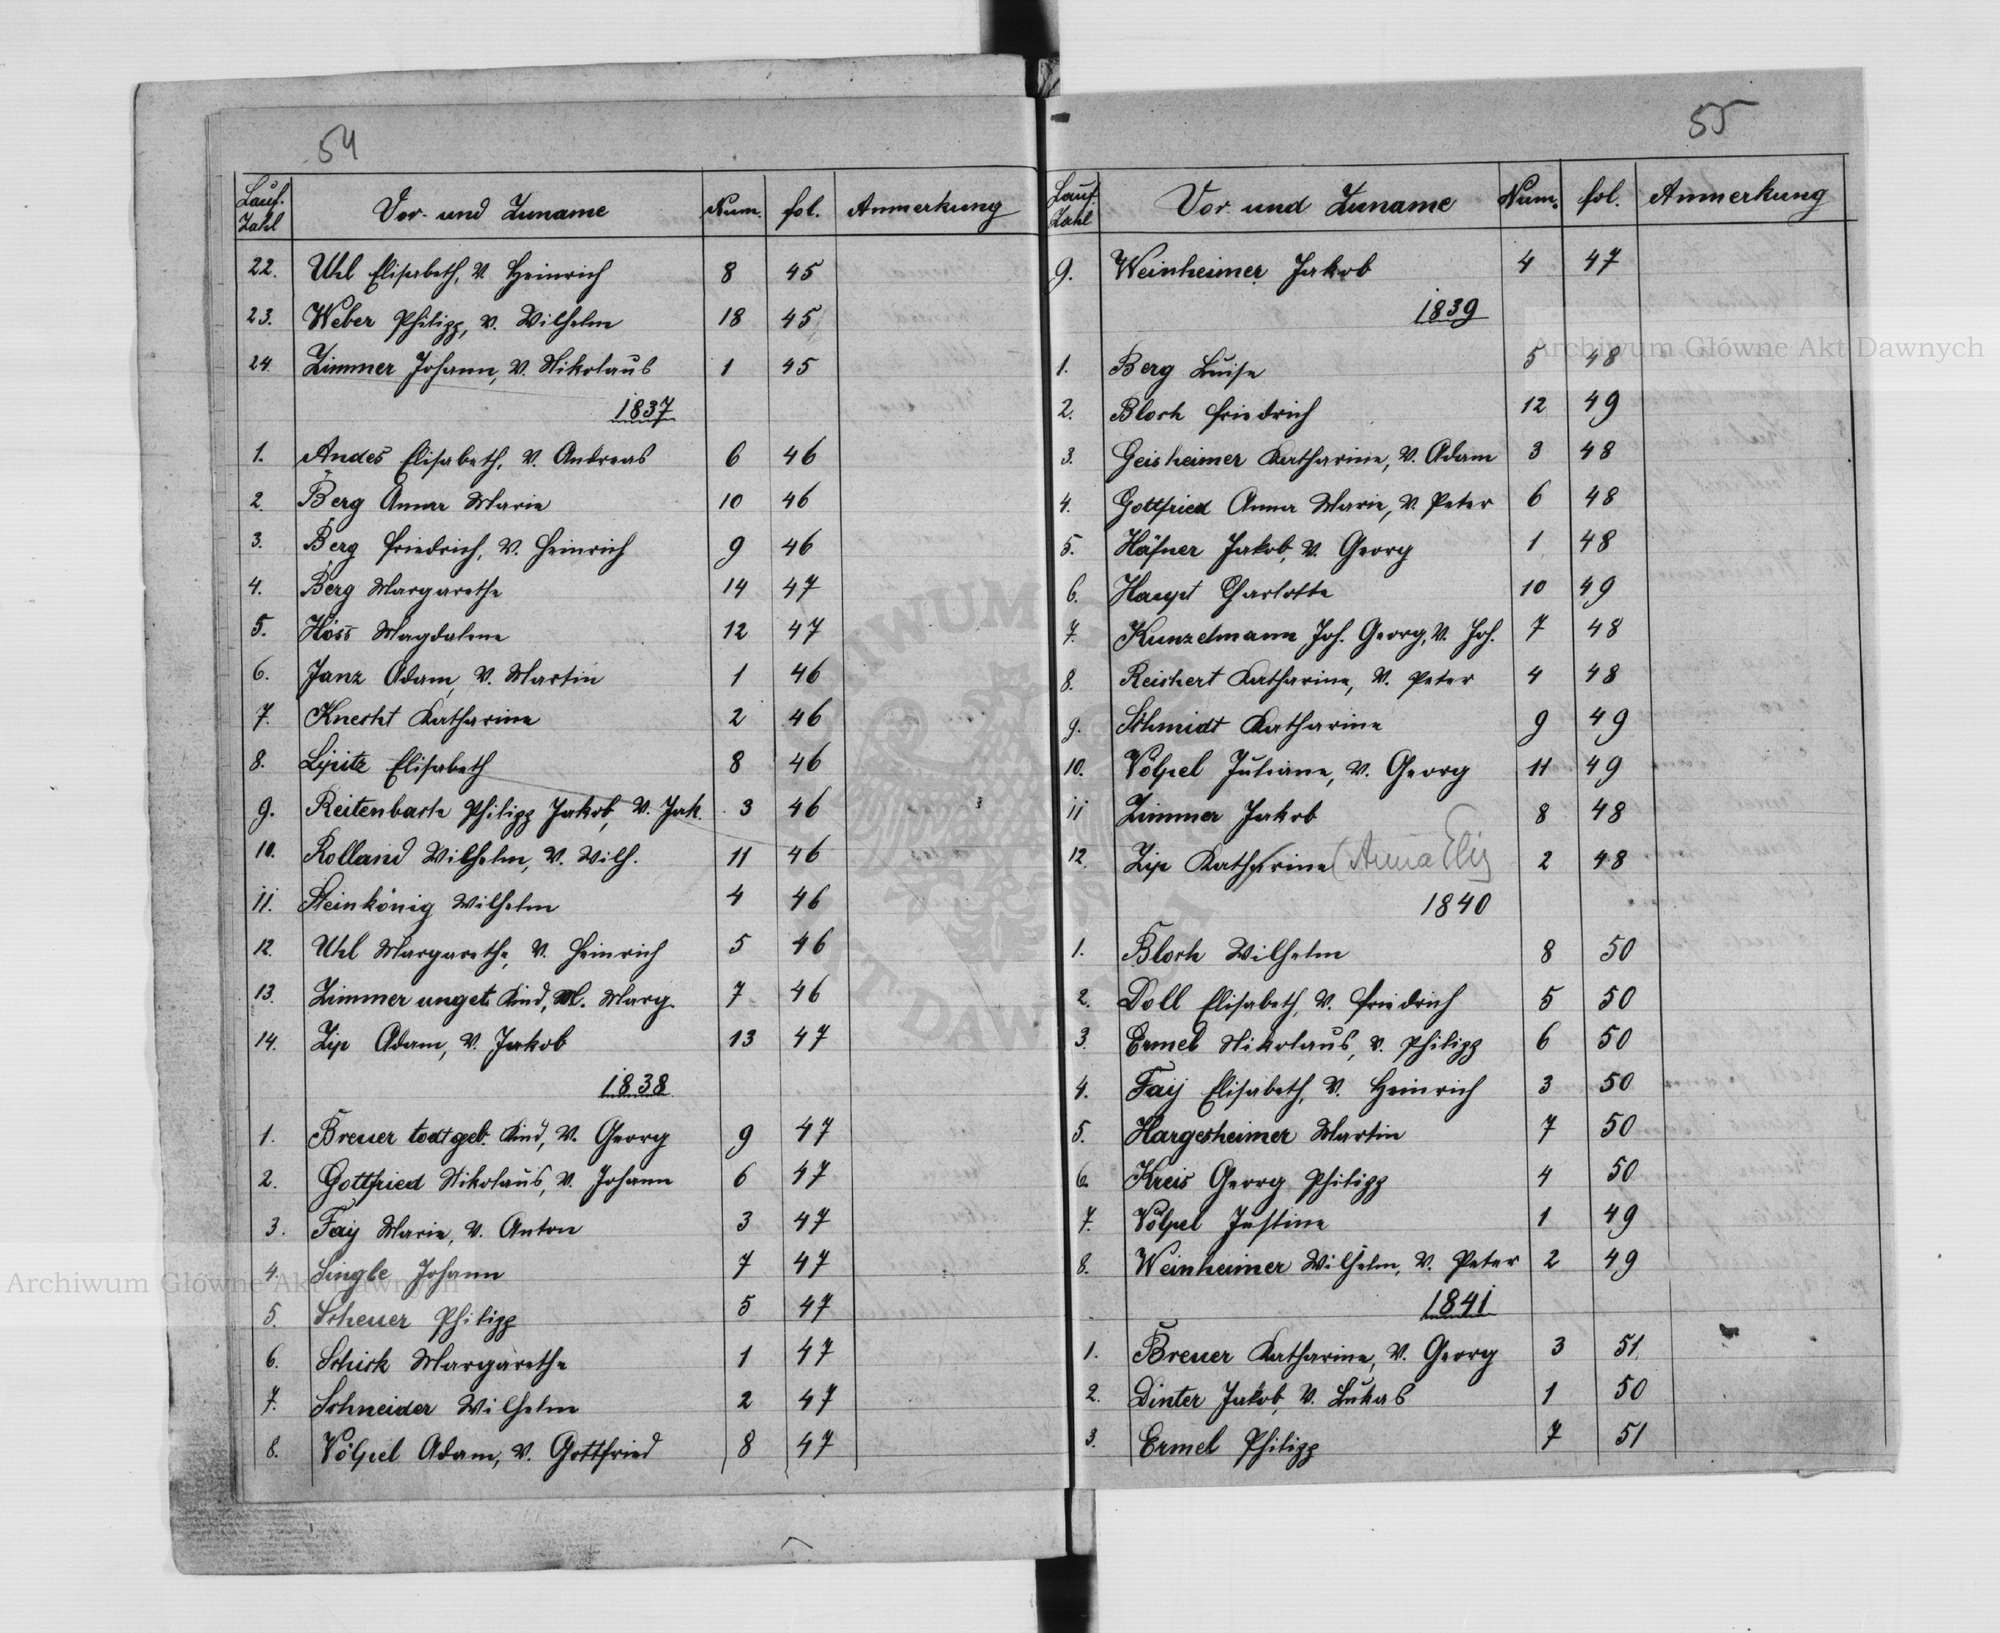 54
Lauf. Zahl Vor- und Zuname Num. fol. Anmerkung
22. Uhl Elisabeth, V. Heinrich 8 45
23. Weber Philipp, V. Wilhelm 18 45
24. Zimmer Johann, V. Nikolaus 1 45
1837
1. Andes Elisabeth, V. Andreas 6 46
2. Berg Anna Marie 10 46
3. Berg Friedrich, V. Heinrich 9 46
4. Berg Margarethe 14 47
5. Höss Magdalene 12 47
6. Janz Adam, V. Martin 1 46
7. Knecht Katharine 2 46
8. Lipitz Elisabeth 8 46
9. Reitenbach Philipp Jakob, V. Jak. 3 46
10. Rolland Wilhelm, V. Wilh. 11 46
11. Steinkönig Wilhelm 4 46
12. Uhl Margarethe, V. Heinrich 5 46
13. Zimmer unget. Kind, M. Marg. 7 46
14. Zip Adam, V. Jakob 13 47
1838
1. Breuer todtgeb. Kind, V. Georg 9 47
2. Gottfried Nikolaus, V. Johann 6 47
3. Faÿ Marie, V. Anton 3 47
4. Single Johann 7 47
5. Scheuer Philipp 5 47
6. Schick Margarethe 1 47
7. Schneider Wilhelm 2 47
8. Völpel Adam, V. Gottfried 8 47
55
Lauf. Zahl Vor- und Zuname Num. fol. Anmerkung
9. Weinheimer Jakob 4 47
1839
1. Berg Luise 5 48
2. Bloch Friedrich 12 49
3. Geisheimer Katharine, V. Adam 3 48
4. Gottfried Anna Marie, V. Peter 6 48
5. Häfner Jakob, V. Georg 1 48
6. Haupt Charlotte 10 49
7. Kunzelmann Joh. Georg, V. Joh. 7 48
8. Reichert Katharine, V. Peter 4 48
9. Schmidt Katharine 9 49
10. Völpel Juliane, V. Georg 11 49
11 Zimmer Jakob 8 48
12. Zip Katharine (Anna Elis 2 48
1840
1. Bloch Wilhelm 8 50
2. Doll Elisabeth, V. Friedrich 5 50
3. Ermel Nikolaus, V. Philipp 6 50
4. Faÿ Elisabeth, V. Heinrich 3 50
5. Hargesheimer Martin 7 50
6. Kreis Georg Philipp 4 50
7. Völpel Justine 1 49
8. Weinheimer Wilhelm, V. Peter 2 49
1841
1. Breuer Katharine, V. Georg 3 51
2. Dinter Jakob, V. Lukas 1 50
3. Ermel Philipp 7 51
Archiwum Główne Akt Dawnych
Archiwum Główne Akt Dawnych